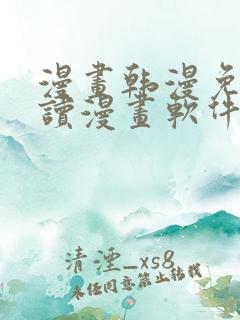 漫畫韩漫免
讀漫畫軟件
清湮_xs8
未经同意禁止转载